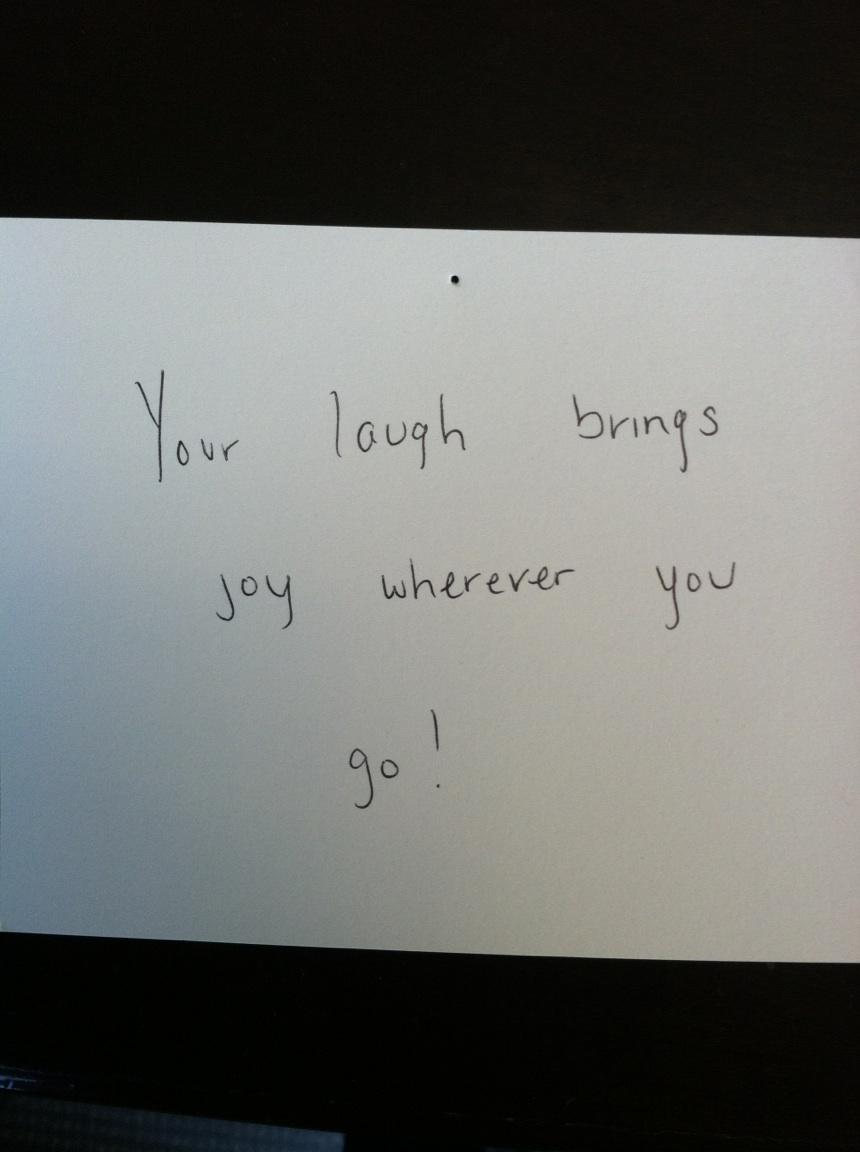 Your laugh brings
joy wherever you
go!